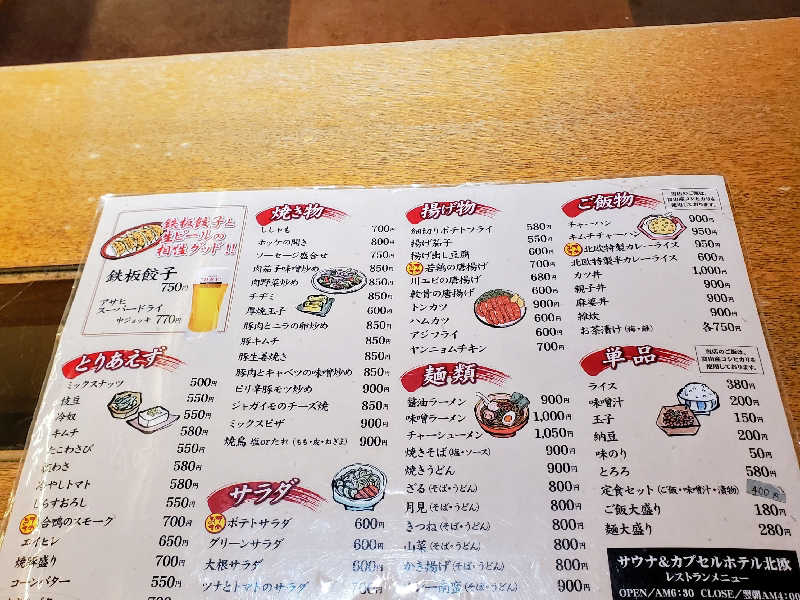 鉄板餃子と
生ビールの
相性グッド!!
鉄板餃子
750円
アサヒ
スーパードライ
中ジョッキ 770円
とりあえず
ミックスナッツ 500円
枝豆 550円
冷奴 550円
キムチ 580円
たこわさび 550円
580円
冷やしトマト 580円
しらすおろし 550円
合鴨のスモーク 700円
エイヒレ 650円
焼豚盛り 700円
コーンバター 550円
焼き物
ししゃも 700円
ホッケの開き 800円
ソーセージ盛合せ 750円
肉茄子味噌炒め 850円
肉野菜炒め 850円
チヂミ 850円
厚焼玉子 600円
豚肉とニラの卵炒め 850円
豚キムチ 850円
豚生姜焼き 850円
豚肉とキャベツの味噌炒め 850円
ピリ辛豚モツ炒め 900円
ジャガイモのチーズ焼 850円
ミックスピザ 900円
焼鳥 塩orたれ(もも・皮・ねぎま) 900円
サラダ
ポテトサラダ 600円
グリーンサラダ 600円
大根サラダ 600円
ツナとトマトのサラダ 700円
揚げ物
細切りポテトフライ 580円
揚げ茄子 550円
揚げ出し豆腐 600円
若鶏の唐揚げ 700円
川エビの唐揚げ 680円
軟骨の唐揚げ 700円
トンカツ 900円
ハムカツ 600円
アジフライ 600円
ヤンニョムチキン 700円
麺類
醤油ラーメン 900円
味噌ラーメン 1,000円
チャーシューメン 1,050円
焼きそば(塩・ソース) 900円
焼きうどん 900円
ざる(そば・うどん) 800円
月見(そば・うどん) 800円
きつね(そば・うどん) 800円
山菜(そば・うどん) 800円
かき揚げ(そば・うどん) 800円
カレー南蛮(そば・うどん) 900円
ご飯物
当店のご飯は、
富山産コシヒカリを
使用しております。
チャーハン 900円
キムチチャーハン 950円
北欧特製カレーライス 950円
北欧特製半カレーライス 600円
カツ丼 1,000円
親子丼 900円
麻婆丼 900円
雑炊 900円
お茶漬け(梅・鮭) 各750円
単品
当店のご飯は、
富山産コシヒカリを
使用しております。
ライス 380円
味噌汁 200円
玉子 150円
納豆 200円
味のり 50円
とろろ 580円
定食セット(ご飯・味噌汁・漬物) 400円
ご飯大盛り 180円
麺大盛り 280円
サウナ&カプセルホテル北欧
レストランメニュー
OPEN/AM6:30 CLOSE/翌朝AM4:00